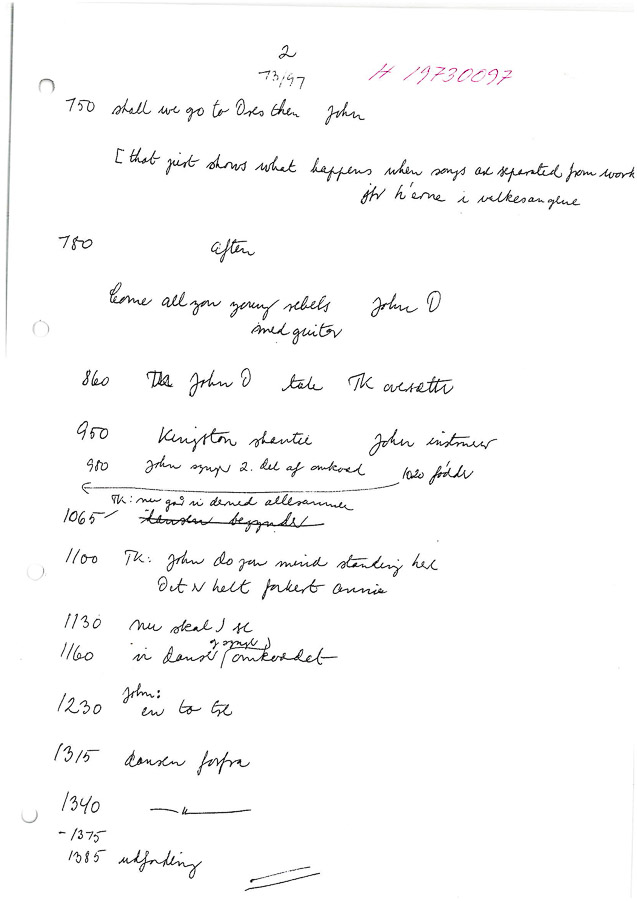 2
73/97 H 19730097
750 shall we go to then John
[ that just shows what happens when songs are separated from work
hørne i
780 aften
Come all you young rebels John D
med guitar
860 John D tale TK oversætte
950 Kingston shantie John
980 John synger 2. del af omkvæd 1020 fødder
TK: nu går vi derned allesammen
1065 dansen begynder
1100 TK: John do you mind standing her
Det er helt forkert Annie
1130 nu skal I se
og synger
1160 vi danser omkvædet
John:
1230 en to tre
1315 dansen forfra
1340 — " —
- 1375
1385 udfading